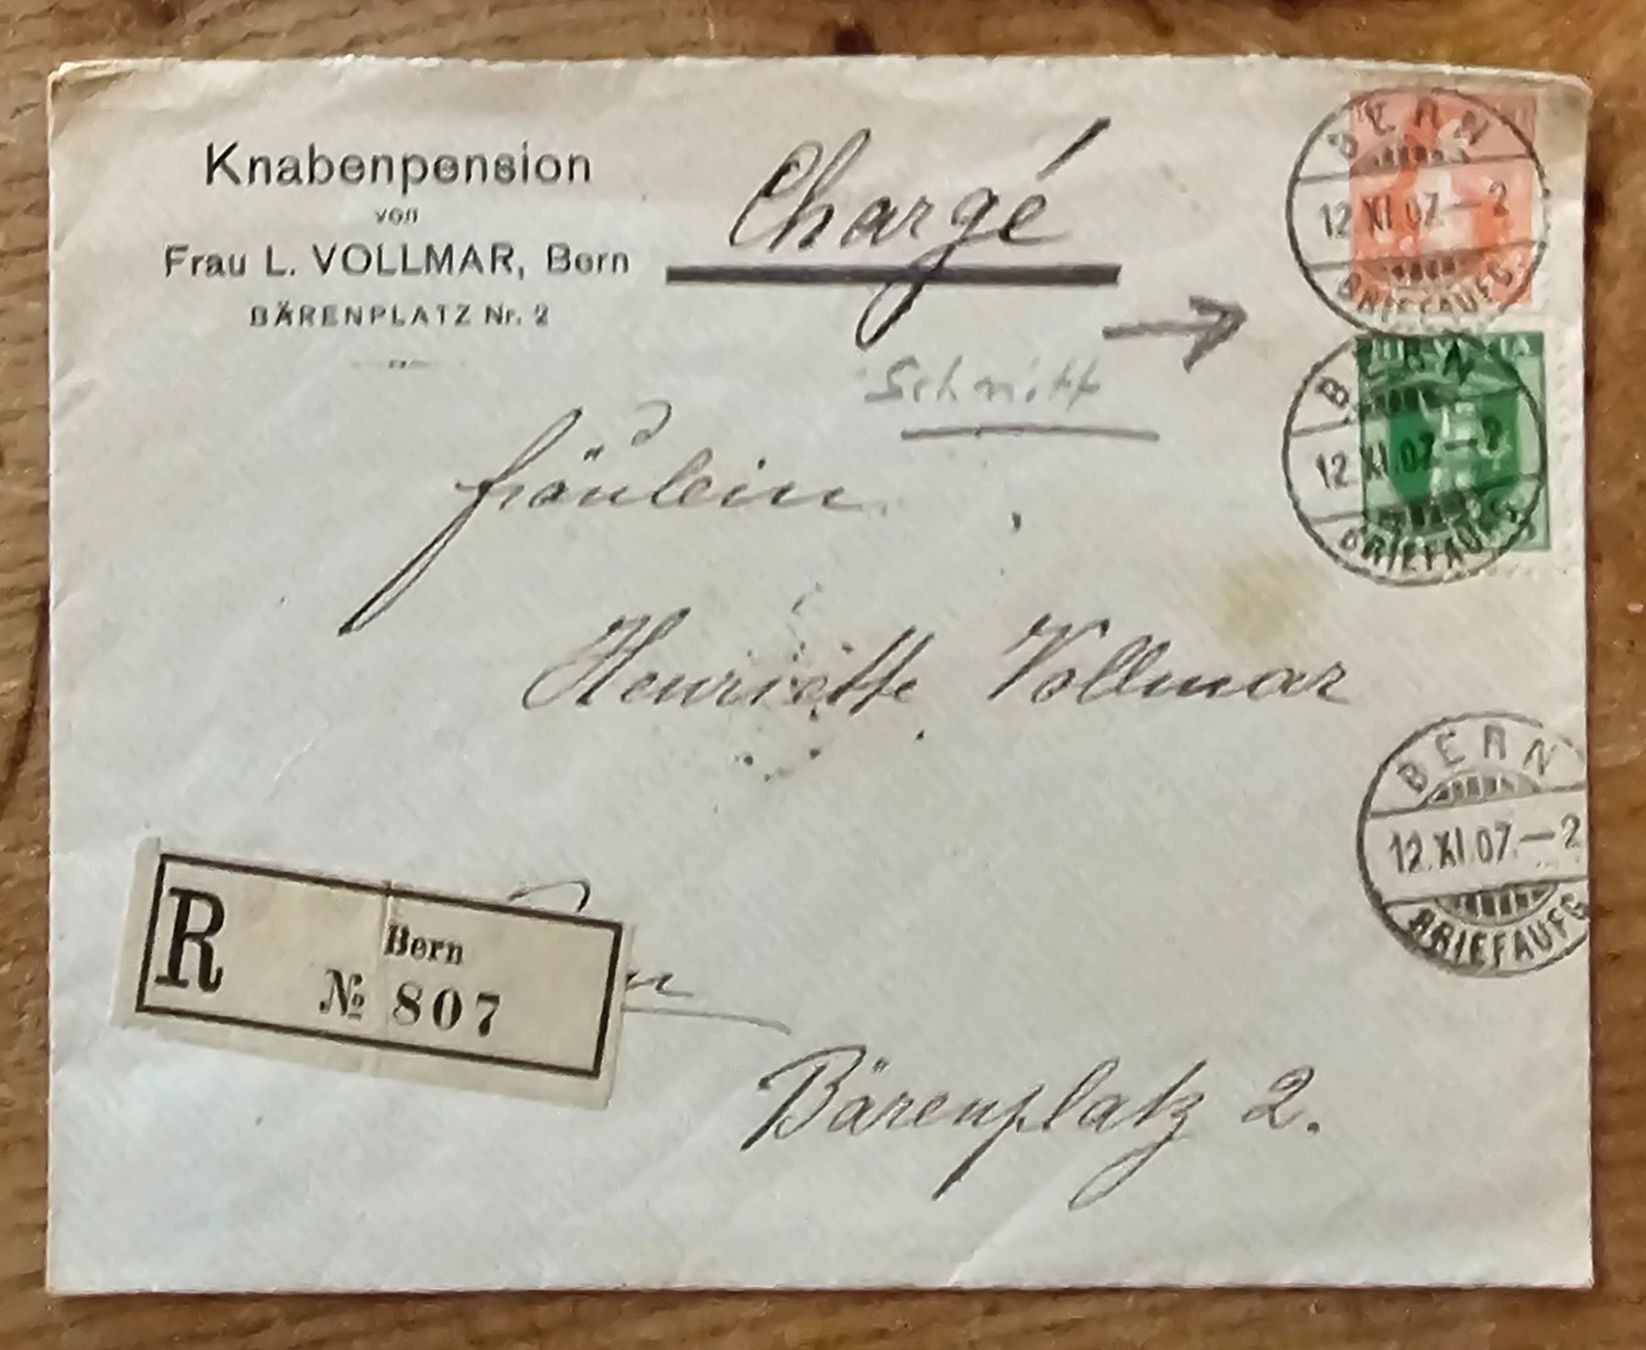 Knabenpension
von
Frau L. VOLLMAR, Bern
BÄRENPLATZ Nr. 2
Chargé
Schnitt
Fräulein
Henriette Vollmar
Bärenplatz 2.
R
Bern
№ 807
BERN
12.XI.07.–2
BRIEFAUFG.
HELVETIA
BERN
12.XI.07.–2
BRIEFAUFG.
BERN
12.XI.07.–2
BRIEFAUFG.